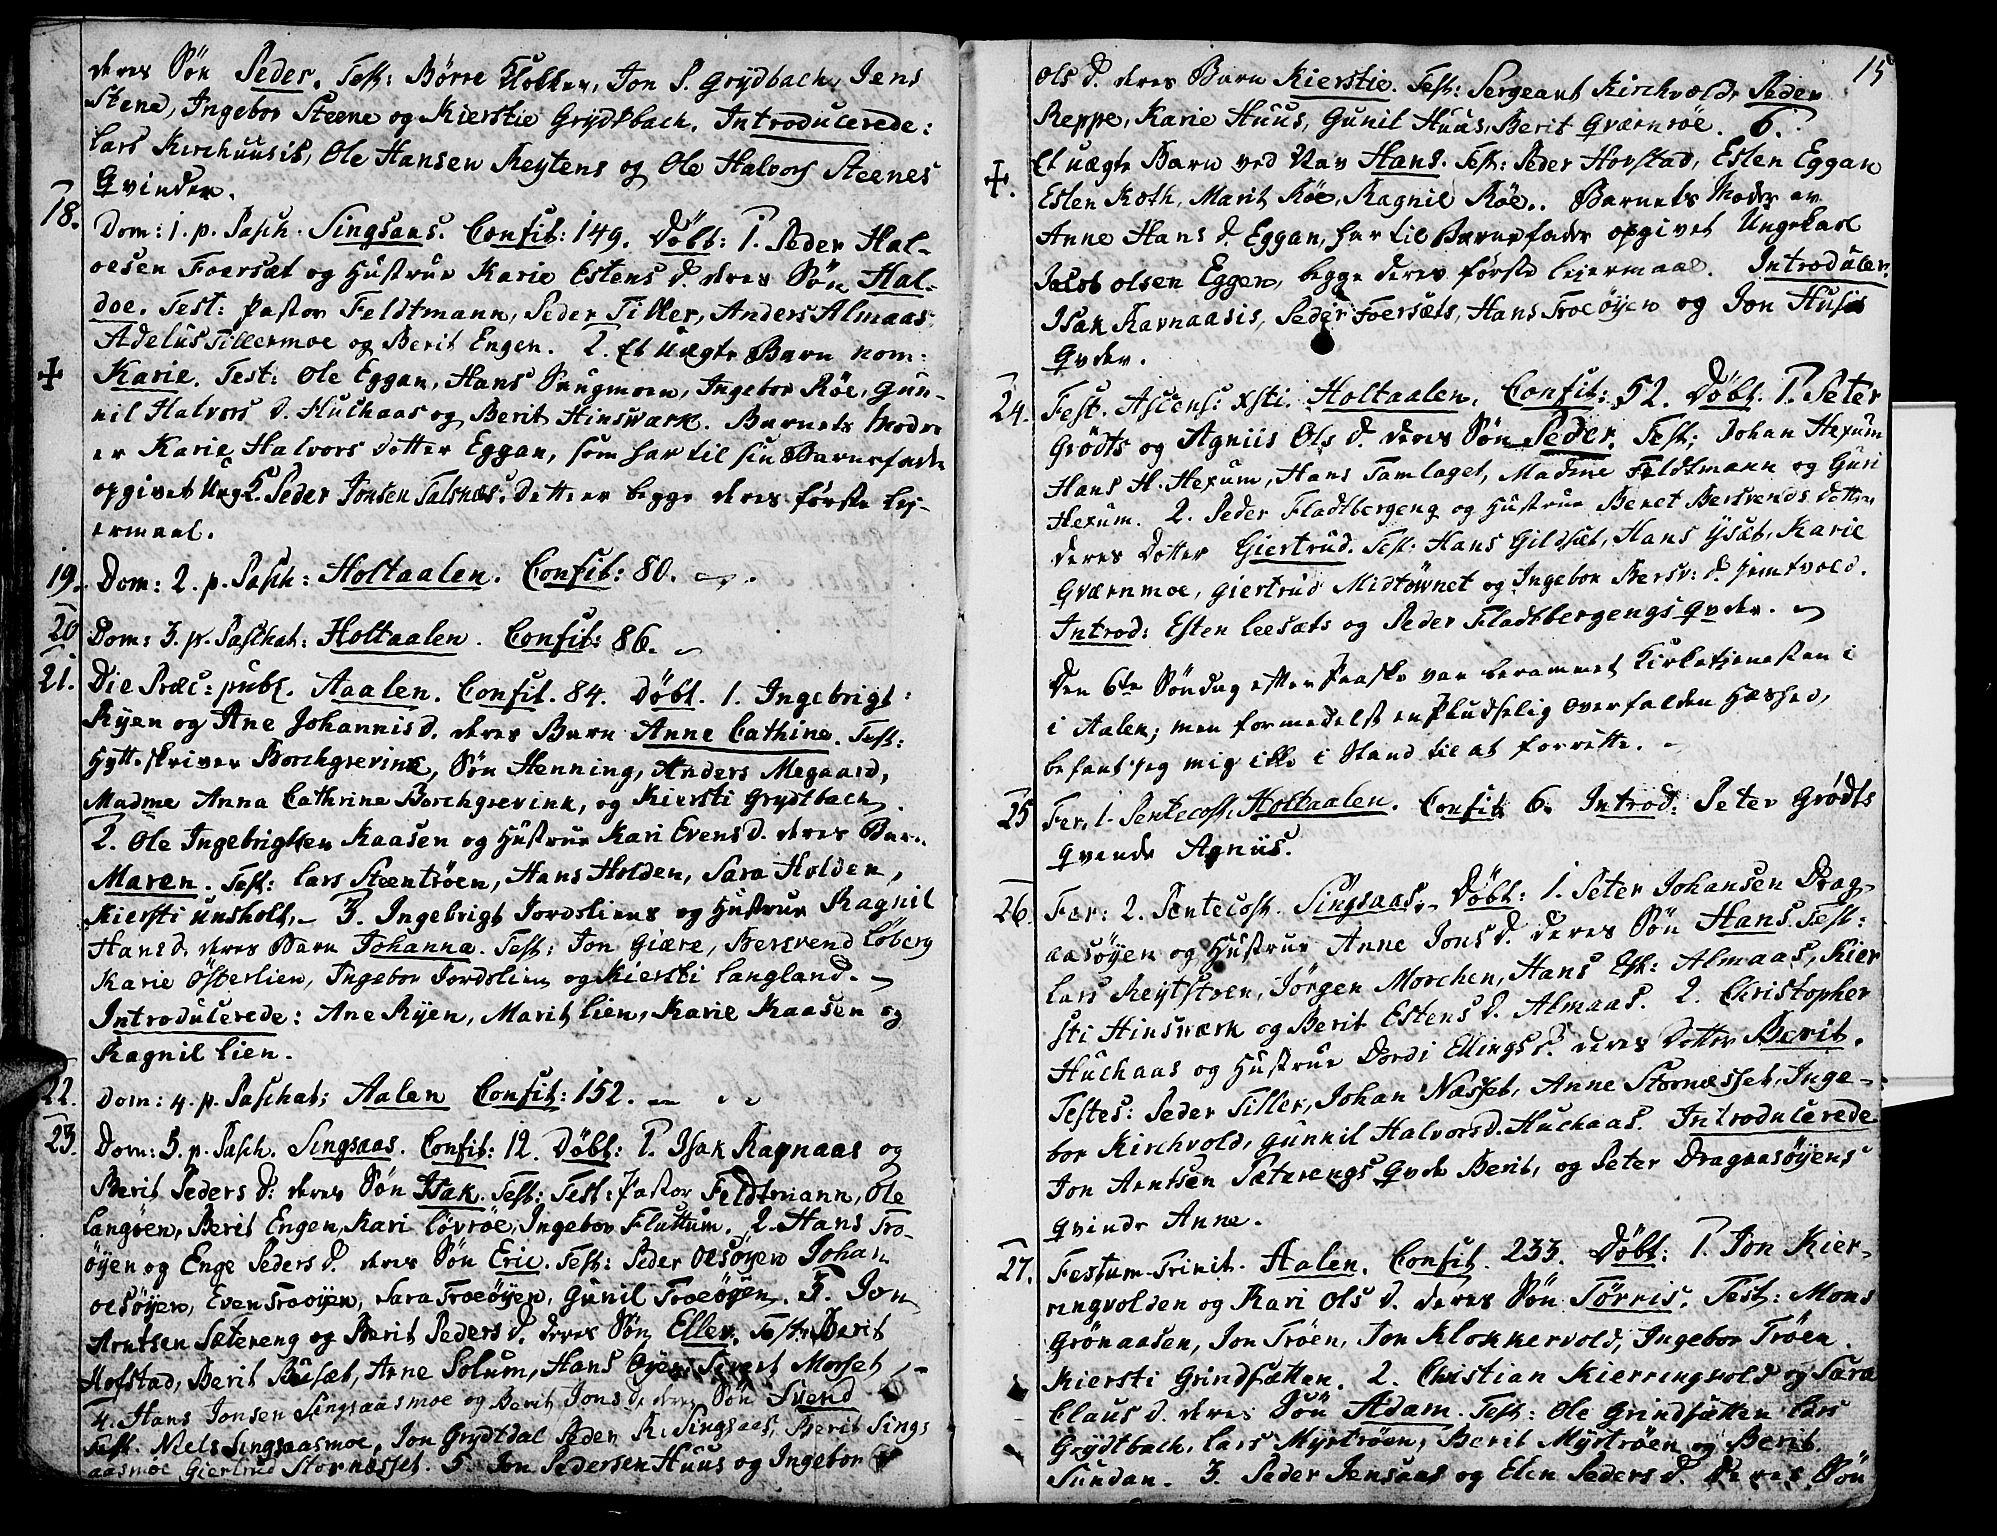 deres Søn Peder. Test: Børre Flokken, Jon P. Grydbach, Jens
Stene, Ingebor Steene og Kierstie Grydsbach. Introducerede:
Lars Kirchuusis, Ole Hansen Reytens og Ole Halvors Steenes
Qvinder.
18. Dom: 1. p. Pasch. Singsaas. Confit: 149. Døbt: 1. Peder Hal-
oesen Foersæt og Hustrue Karie Estens d. deres Søn Hal-
doe. Test: Pastor Feldtmann, Peder Tiller, Anders Almaas,
Adelus Tillermoe og Berit Engen. 2. Et Uægte Barn nom:
Karie. Test: Ole Eggan, Hans Paugmoen, Ingebor Røe, Gun-
nil Halvors d. Huchaas og Berit Hinsværk. Barnets Moder
er Karie Halvors dotter Eggan, som har til sin Barnefader
opgivet Ung K. Peder Jonsen Talsnæs. Dette er begge deres første Lej-
ermaal.
19. Dom: 2. p. Pasch: Holtaalen. Confit: 80.
20. Dom: 3. p. Paschat: Holtaalen. Confit: 86.
21. Die Præc: publ. Aaalen. Confit. 84. Døbt. 1. Ingebrigt
Ryen og Ane Johannis d. deres Barn Anne Cathine. Test:
Hytteskriver Borchgrevink, Søn Henning, Anders Megaard,
Madme Anna Cathrine Borchgrevink, og Kiersti Grydtbach.
2. Ole Ingebrigtsen Kaasen og Hustrue Kari Evens d. deres Barn
Maren. Test: Lars Steentrøen, Hans Holden, Sara Holden,
Kiersti Unsholt. 3. Ingebrigt Jordsliens og Hustrue Ragnil
Hans d. deres Barn Johanna. Test: Jon Giære, Bersvend Løberg
Karie Østerlien, Ingebor Jordslien og Kiersti Langland.
Introducerede: Ane Ryen, Marit Lien, Karie Kaasen og
Ragnil Lien.
22. Dom: 4. p. Paschat; Aalen Confit: 152.
23. Dom: 5. p. Pasch. Singsaas. Confit: 12. Døbt: 1. Isak Ramnaas og
Berit Peders d: deres Søn Isak. Test: Test: Pastor Feldtmann, Ole
Langøen, Berit Engen, Kari Løvrøe, Ingebor Fluttum. 2. Hans Tro-
øyen og Enge Peders d. deres Søn Eric. Test: Peder Oesøyen Johan
Oesøyen, Even Troøyen, Sara Troeøyen, Gunil Troeøyen. 3. Jon
Arntsen Sætereng og Berit Peders d. deres Søn Ellev. Test: Berit
Hofstad, Berit Busæt, Arne Solum, Hans Øyen, Sivert Morset
4. Hans Jonsen Singsaasmoe og Berit Jons d. deres Søn Svend
Test. Niels Singsaasmoe, Jon Grydtdal Peder R. Singsaas, Berit Sings
aasmoe Giertrud Stornæsset. 5. Jon Pedersen Huus og Ingebor
15
Ols d. deres Barn Kierstie. Test: Sergeant Kirchvold, Peder
Reppe, Karie Huus, Gunil Huus, Berit Qværnrøe. 6.
Et uægte Barn ved Nav Hans. Test: Peder Hovstad, Esten Eggan
Esten Koth, Marit Røe, Ragnil Røe.. Barnets Moder er
Anne Hans d. Eggan, har til Barnefader opgivet Ungekarl
Jacob Olsen Eggen, begge deres første Lejermaal. Introducer:
Isak Ramnaasis, Peder Foersæts, Hans Troeøyen og Jon Husis
Qvder.
24. Fest. Ascens: Xsti. Holtaalen, Confit: 52. Døbt. 1. Peter
Grødts og Agniis Ols d. deres Søn Peder. Test; Johan Hexum
Hans H. Hexum, Hans Tamlaget, Madme Feldtmann og Guri
Hexum. 2. Peder Fladtbergeng og Hustrue Beret Bersvends dotter
deres Dotter Giertrud. Test: Hans Gildsæt, Hans Ysæt, Karie
Qværnmoe, Giertrud Midtøwnet og Ingebor Bersv: d. Hemtvold.
Introd: Esten Leesæts og Peder Fladtbergengs Qvder.
Den 6te Søndag efter Paaske var berammet Kirketjenesten i
i Aalen; men formedelst en pludselig overfalden Hæshed,
befant jeg mig ikke i Stand til at forrette.
25 Fer. 1. Pentecost. Holtaalen. Confit 6. Introd: Peter Grødts
Qvende Agniis.
26. Fer: 2. Pentecost. Singsaas. Døbt: 1. Peter Johansen Drag-
aasøyen og Hustrue Anne Jons d. deres Søn Hans. Test:
Lars Reytstøen, Jørgen Morchen, Hans Est: Almaas, Kier
sti Hinsværk og Berit Estens d. Almaas. 2. Christopher
Huchaas og Hustrue Dordi Ellings d. deres Dotter Berit.
Testes: Peder Tiller, Johan Næsset, Anne Stornæsset, Inge-
bor Kirchvold, Gunnil Halvors d. Huchaas. Introducerede
Jon Arntsen Sæterengs Qvde Berit, og Peter Dragaasøyens
Qvinde Anne.
27. Festum Trinit. Aalen. Confit. 233. Døbt: 1. Jon Kier-
ringvolden og Kari Ols d. deres Søn Tørris. Test: Mons
Grønaasen, Jon Trøen, Jon Klokkervold, Ingebor Trøen
Kiersti Grindsætten. 2. Christian Kierringvold og Sara
Claus d. deres Søn Adam. Test: Ole Grindsætten Lars
Grydtbach, Lars Myrtrøen, Berit Myrtrøen og Berit
Sundan. 3. Peder Jensaas og Elen Peders d. deres Søn